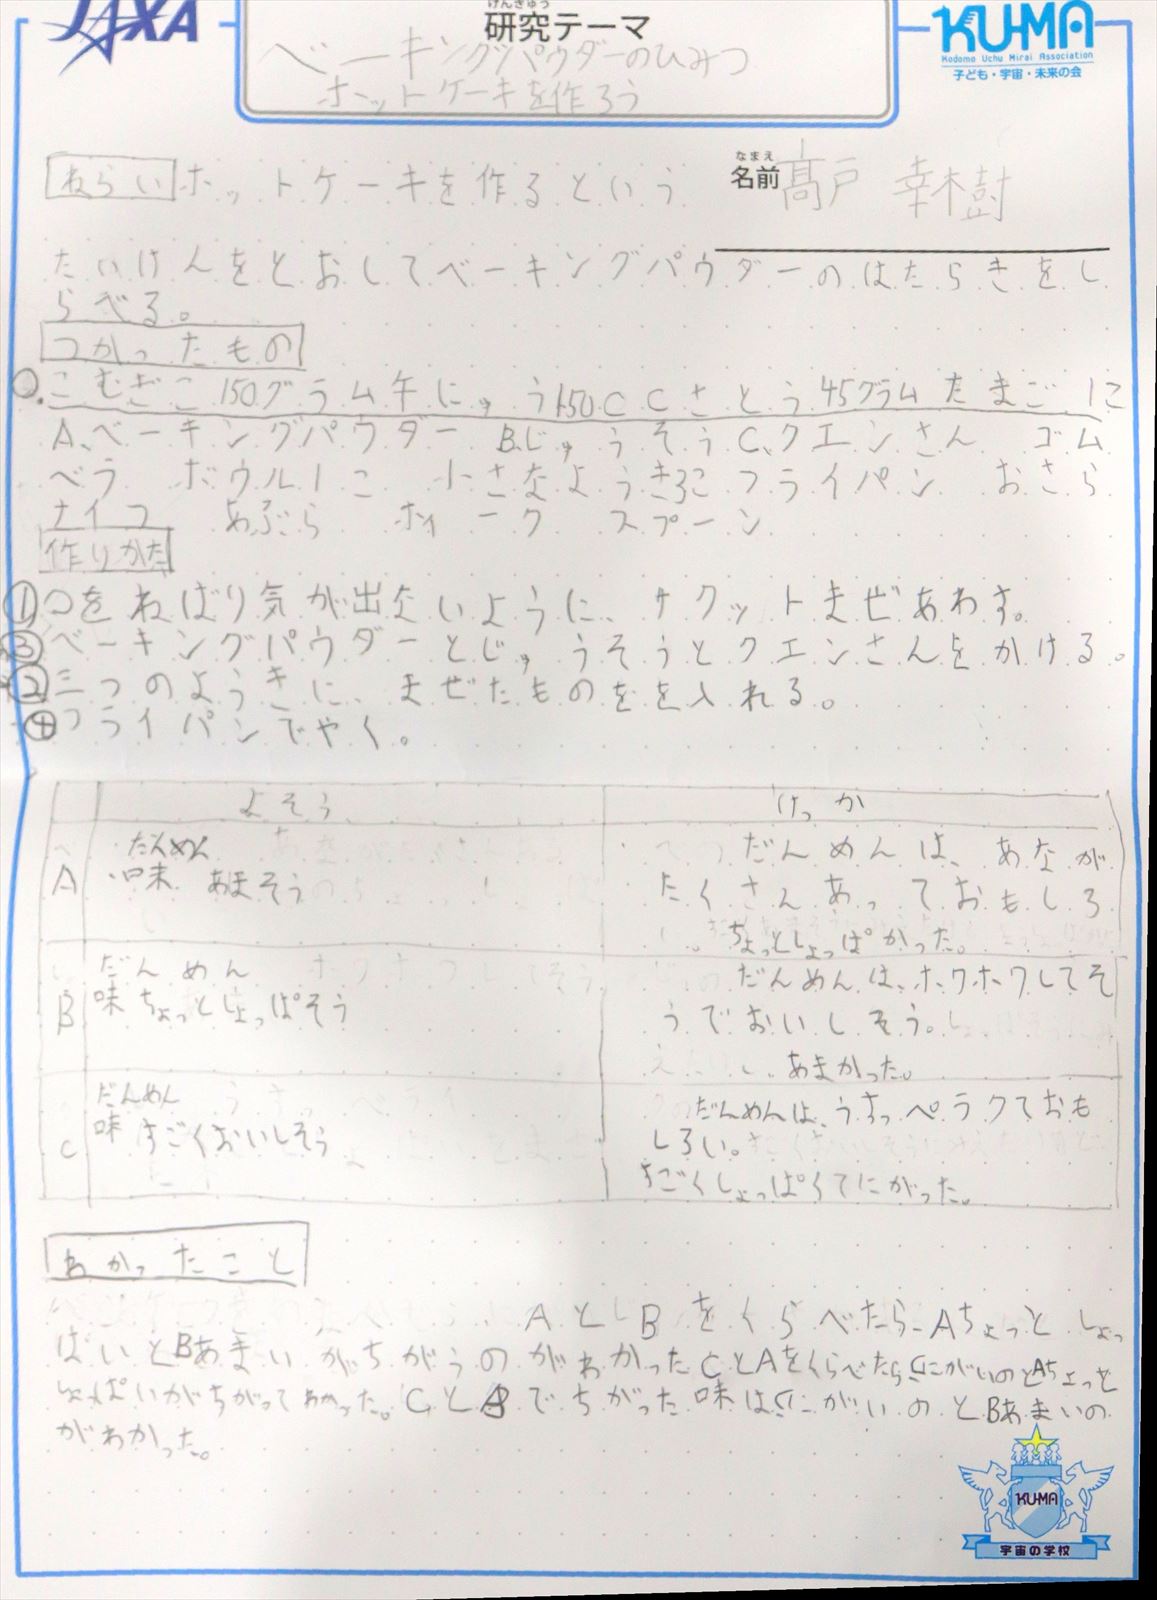 JAXA
けんきゅう
研究テーマ
KU-MA
Kodomo Uchu Mirai Association
子ども・宇宙・未来の会
ベーキングパウダーのひみつ
ホットケーキを作ろう
なまえ
名前 髙戸 幸樹
ねらい ホットケーキを作るという
たいけんをとおしてベーキングパウダーのはたらきをし
らべる。
つかったもの
○こむぎこ 150グラム牛にゅう150CCさとう45グラムたまご1こ
A、ベーキングパウダー B.じゅうそうC、クエンさん ゴム
ベラ ボウル1こ 小さなようき3こフライパン おさら
ナイフ あぶら ホォーク スプーン
作りかた
①○をねばり気が出ないように、サクットまぜあわす。
③ベーキングパウダーとじゅうそうとクエンさんをかける。
②三つのようきに、まぜたものをを入れる。
④フライパンでやく。
よそう けっか
A
だんめん
・味 あまそう
だんめんは、あなが
たくさんあっておもしろ
い。ちょっとしょっぱかった。
B
だんめん ホワホワしてそう
味 ちょっとしょっぱそう
だんめんは、ホワホワしてそ
うでおいしそう。
あまかった。
C
だんめん
味 すごくおいしそう
だんめんは、うすっペラクておも
しろい。
すごくしょっぱくてにがった。
わかったこと
AとBをくらべたらAちょっとしょっ
ぱいとBあまいがちがうのがわかったCとAをくらべたらCにがいのとAちょっと
しょっぱいがちがってわかった。CとBでちがった味はCにがいのとBあまいの
がわかった。
KU-MA
宇宙の学校